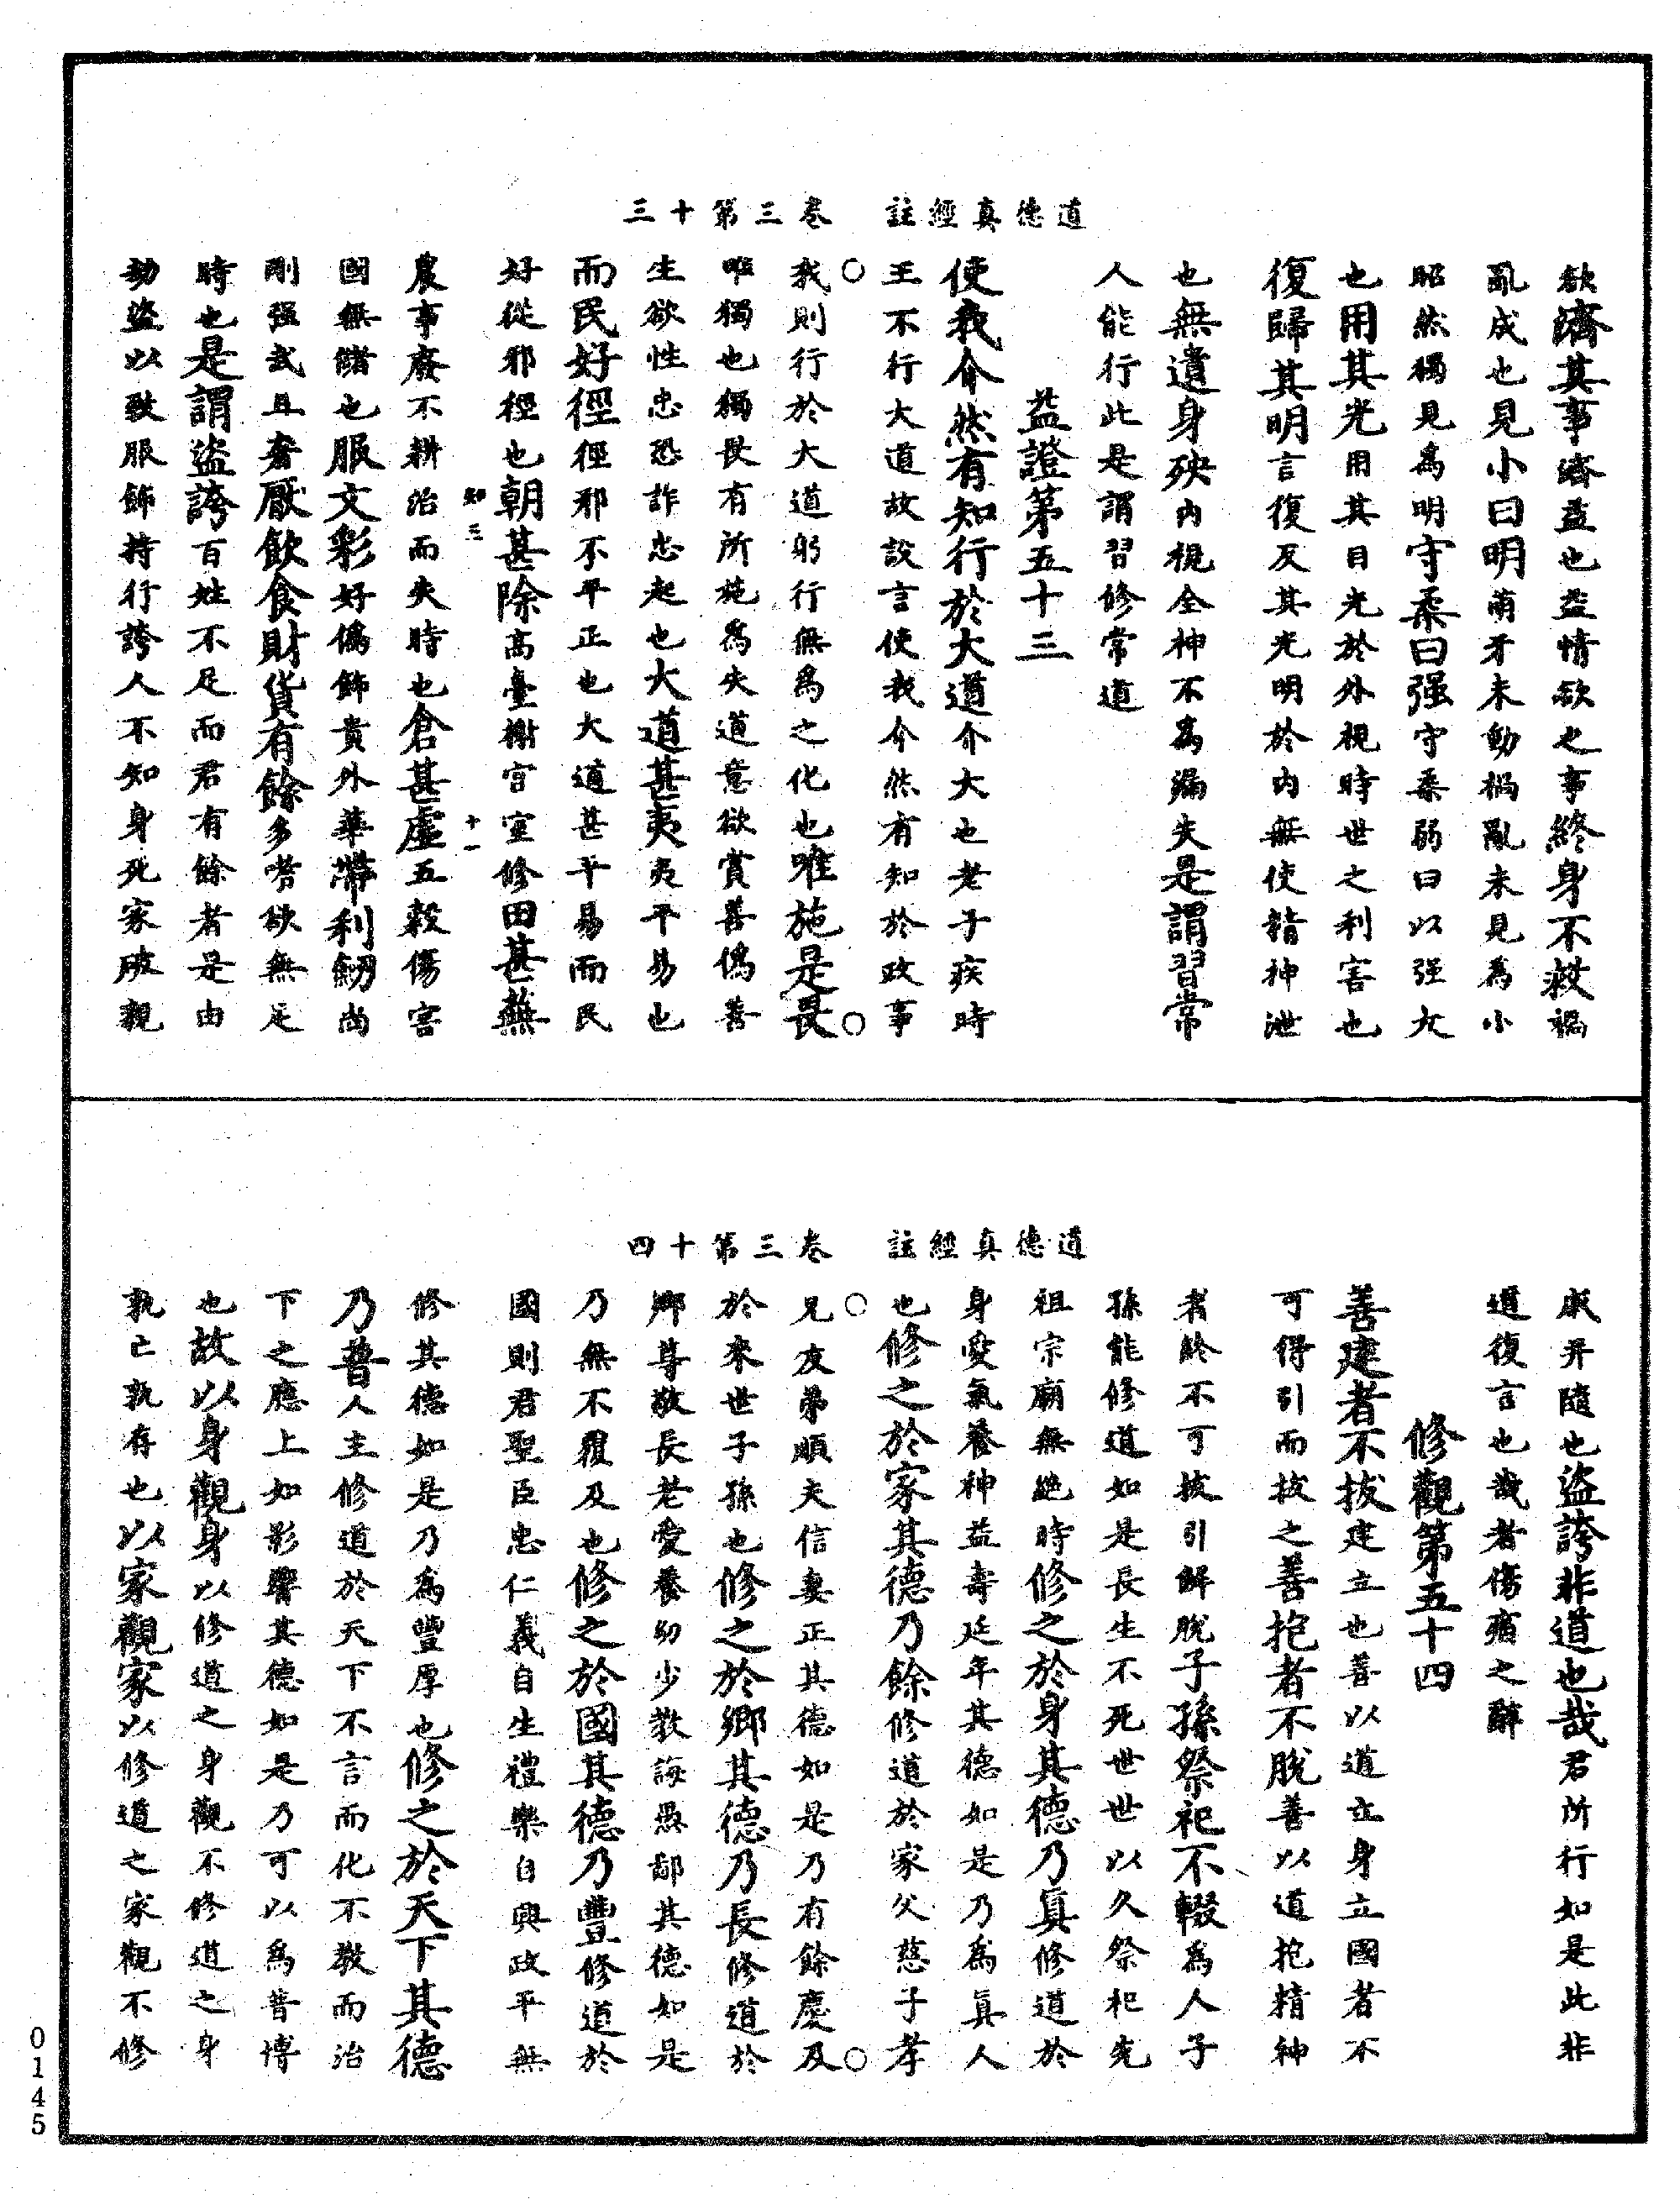 道德真經註　卷三第十三
欲濟其事濟益也益情欲之事終身不救禍
亂成也見小曰明萌牙未動禍亂未見為小
昭然獨見為明守柔曰强守柔弱曰以强大
也用其光用其目光於外視時世之利害也
復歸其明言復及其光明於內無使精神泄
也無遺身殃內視全神不為漏失是謂習常
人能行此是謂習修常道
益證第五十三
使我介然有知行於大道介大也老子疾時
王不行大道故設言使我介然有知於政事
我則行於大道躬行無為之化也唯施是畏
唯獨也獨畏有所施為失道意欲賞善偽善
生欲性忠恐詐忠起也大道甚夷夷平易也
而民好徑徑邪不平正也大道甚平易而民
好從邪徑也朝甚除高臺榭宮室修田甚蕪
知三　十一
農事廢不耕治而失時也倉甚虛五穀傷害
國無儲也服文彩好偽飾貴外華帶利劒尚
剛强武且奢厭飲食財貨有餘多嗜欲無足
時也是謂盜誇百姓不足而君有餘者是由
劫盜以致服飾持行誇人不知身死家破親
道德真經註　卷三第十四
戚并隨也盜誇非道也哉君所行如是此非
道復言也哉者傷痛之辭
修觀第五十四
善建者不拔建立也善以道立身立國者不
可得引而拔之善抱者不脫善以道抱精神
者終不可拔引解脫子孫祭祀不輟為人子
孫能修道如是長生不死世世以久祭祀先
祖宗廟無絕時修之於身其德乃真修道於
身愛氣養神益壽延年其德如是乃為真人
也修之於家其德乃餘修道於家父慈子孝
兄友弟順夫信妻正其德如是乃有餘慶及
於來世子孫也修之於鄉其德乃長修道於
鄉尊敬長老愛養幼少教誨愚鄙其德如是
乃無不覆及也修之於國其德乃豐修道於
國則君聖臣忠仁義自生禮樂自興政平無
修其德如是乃為豐厚也修之於天下其德
乃普人主修道於天下不言而化不教而治
下之應上如影響其德如是乃可以為普博
也故以身觀身以修道之身觀不修道之身
孰亡孰存也以家觀家以修道之家觀不修
0145